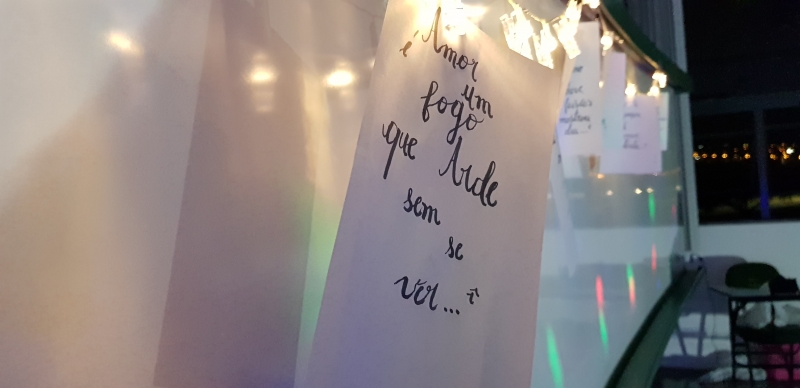 Amor
é um
fogo
que Arde
sem
se
ver...